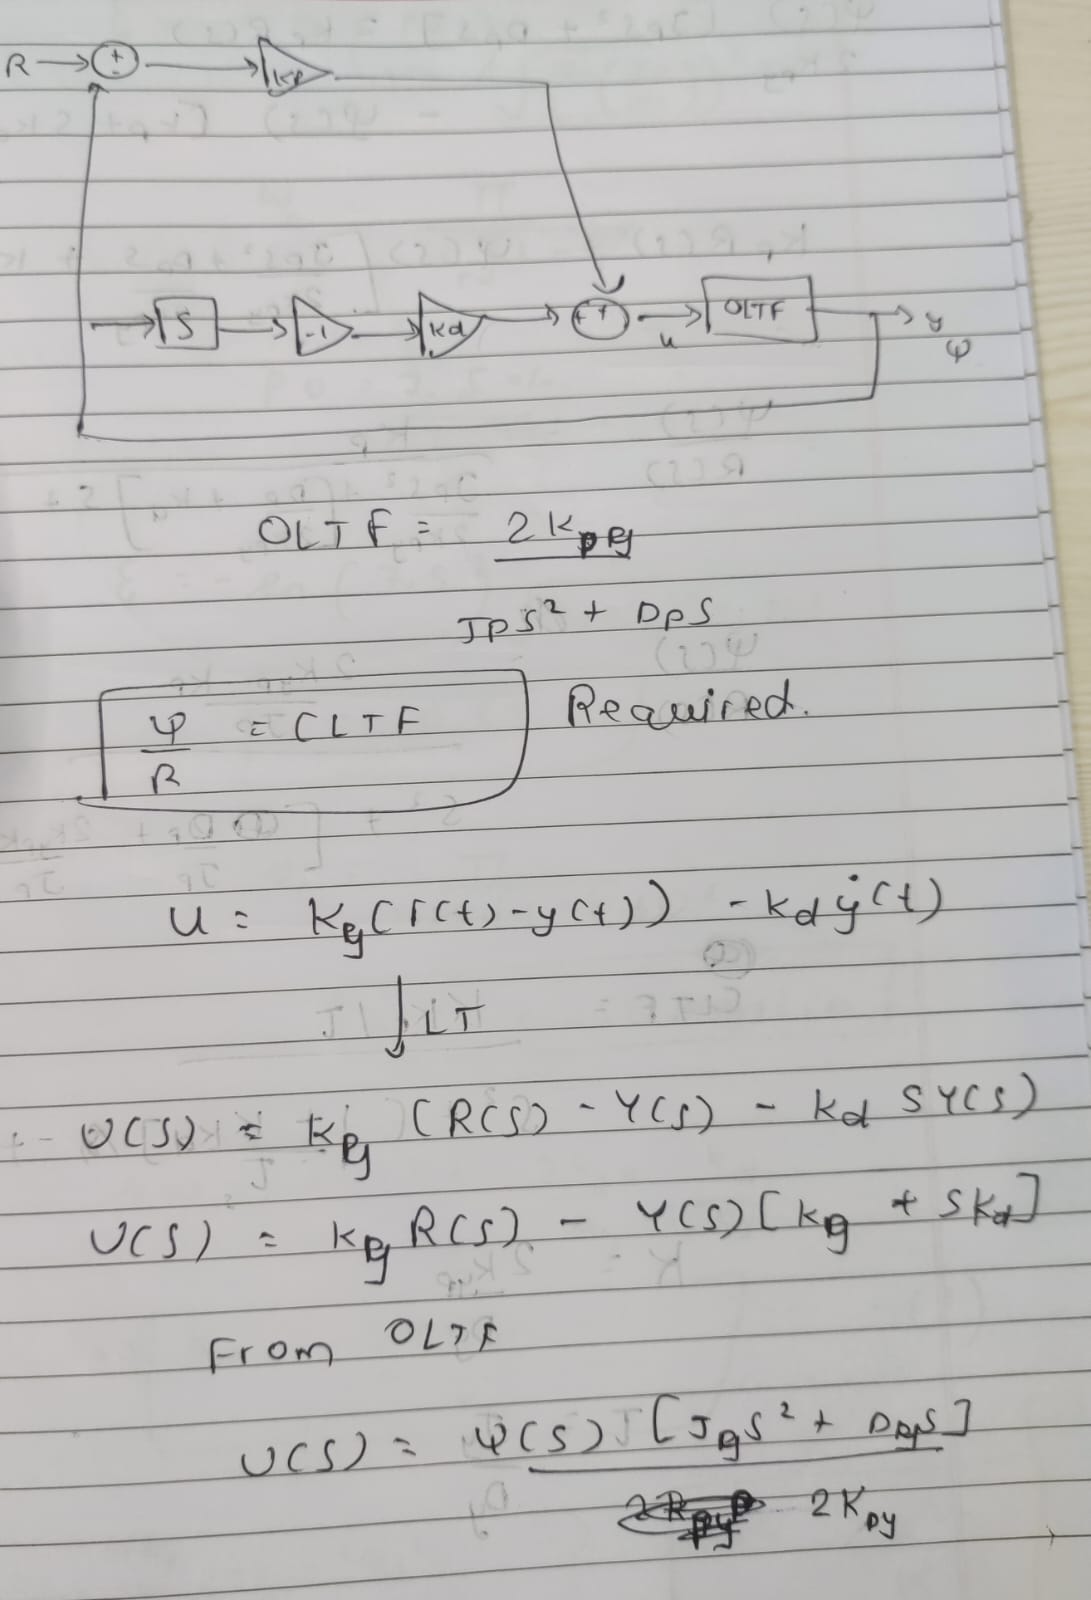 R + - Kp
S -1 Kd + + u OLTF y
φ
OLTF = 2Kpy
JpS² + DpS
φ = CLTF Required.
R
U = Ky(r(t)-y(t)) - Kdẏ(t)
LT
U(S) = Ky (R(S) - Y(S) - Kd SY(S)
U(S) = Ky R(S) - Y(S)[Ky + SKd]
From OLTF
U(S) = φ(S) [JyS² + DyS]
2Kpy